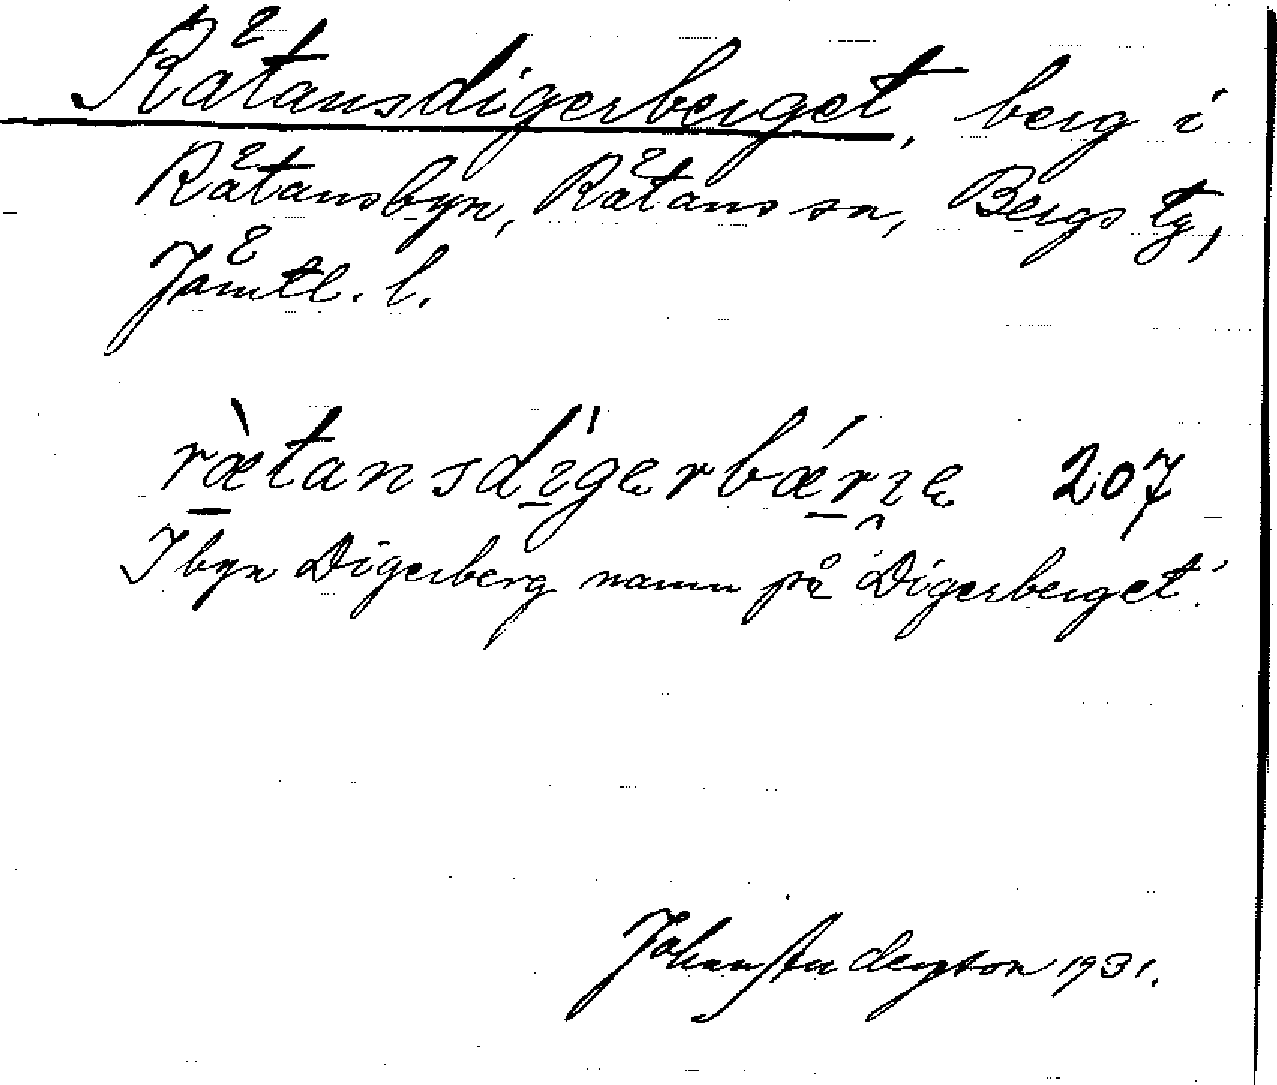 Rätansdigerberget, berg i
Rätansbyn, Rätans sn, Bergs tg,
Jämtl. l.
ræ̀tansdı̀gęrbǽrıę 207
I byn Digerberg namn på Digerberget.
Johan Anderston 1931.